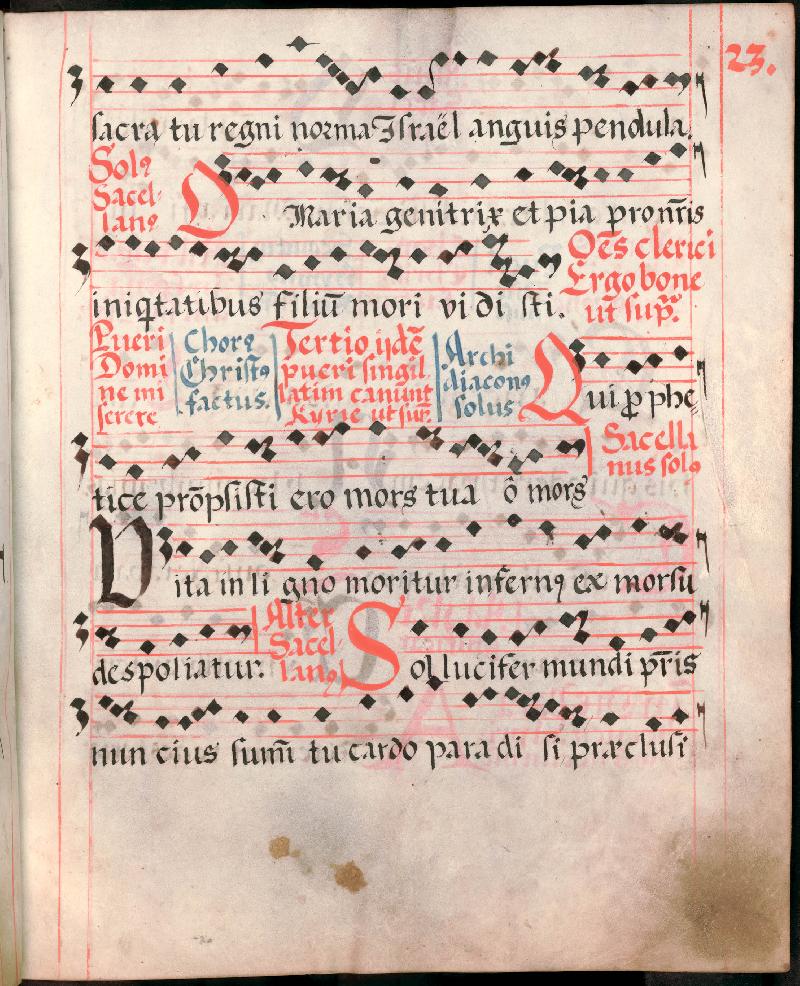 23.
sacra tu regni norma Israël anguis pendula.
Solꝰ
Sacel-
lanꝰ
O Maria genitrix et pia pro nr̄is
iniq̄tatibus filiū mori vidisti.
Oēs clerici
Ergo bone
ut sup̄.
Pueri
Domi
ne mi
serere
Chorꝰ
Christꝰ
factus.
Tertio ijdē
pueri singil
latim canunt
Kyrie ut sup̄.
Archi
diaconꝰ
solus
Qui ꝓ phe
tice prōpsisti ero mors tua ô mors
Sacella
nus solꝰ
Vita in ligno moritur infernꝰ ex morsu
despoliatur.
Alter
Sacel
lanꝰ
Sol lucifer mundi pr̄is
nuncius sum̄i tu cardo paradisi præclusi